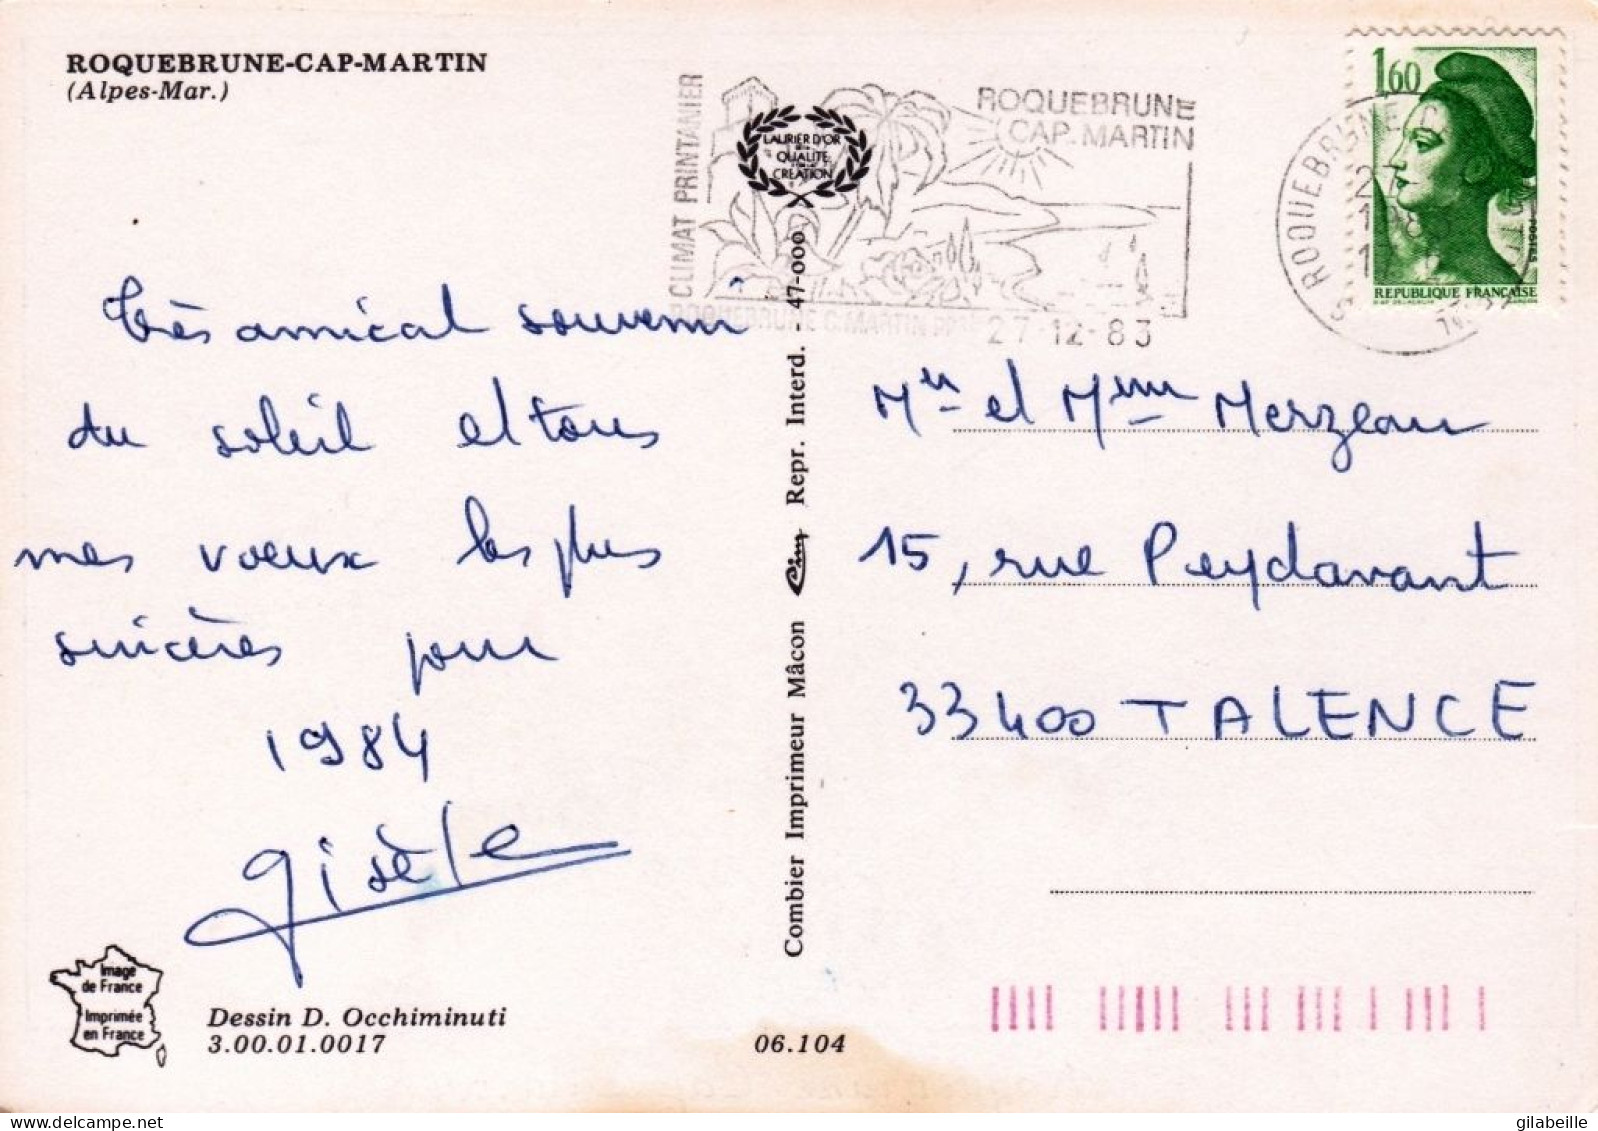 ROQUEBRUNE-CAP-MARTIN
(Alpes-Mar.)
CLIMAT PRINTANIER
ROQUEBRUNE
CAP-MARTIN
LAURIER D'OR
QUALITÉ
CRÉATION
ROQUEBRUNE C. MARTIN PPAL
27-12-83
1,60
POSTES
REPUBLIQUE FRANÇAISE
ROQUEBRUNE C
Très amical souvenir
du soleil et tous
mes voeux les plus
sincères pour
1984
Gisèle
Combier Imprimeur Mâcon Cim Repr. Interd. - 47-000
Mr et Mme Merzeau
15, rue Peydavant
33400 TALENCE
Image
de France
Imprimée
en France
Dessin D. Occhiminuti
3.00.01.0017
06.104
gilabeille